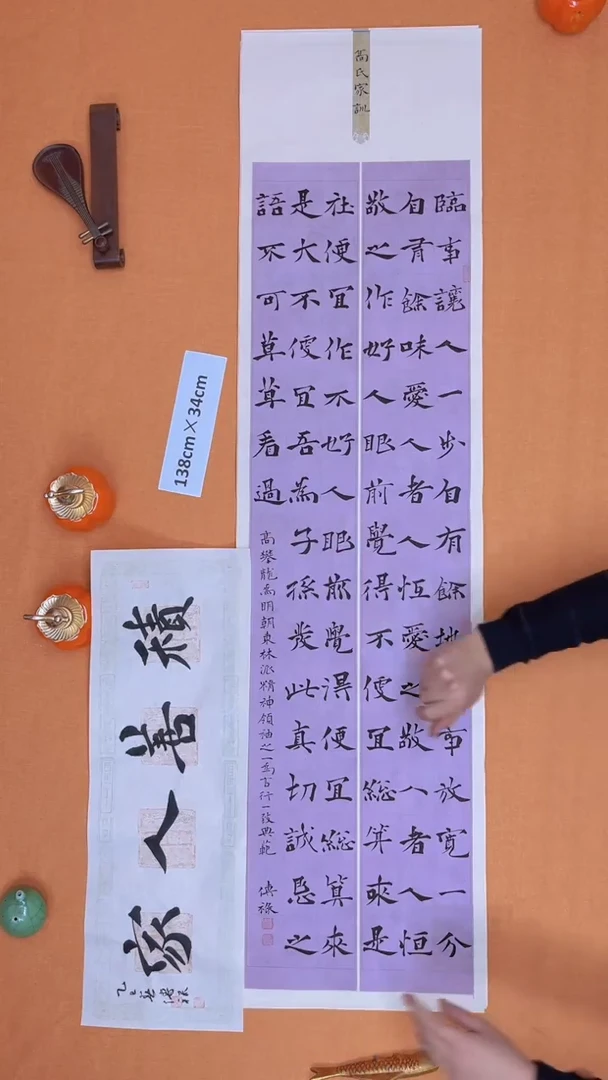 高氏家訓
臨事讓人一步自有餘地事放寬一分
自有餘味愛人者人恆愛之敬人者人恒
敬之作好人眼前覺得不便宜總算來是
社便宜作不好人眼前覺得便宜總算來
是大不便宜吾為子孫發此真切誠懇之
語不可草草看過
高攀龍為明朝東林派精神領袖之一為言行一致典範 傳祿
138cm×34cm
積善人家
乙巳